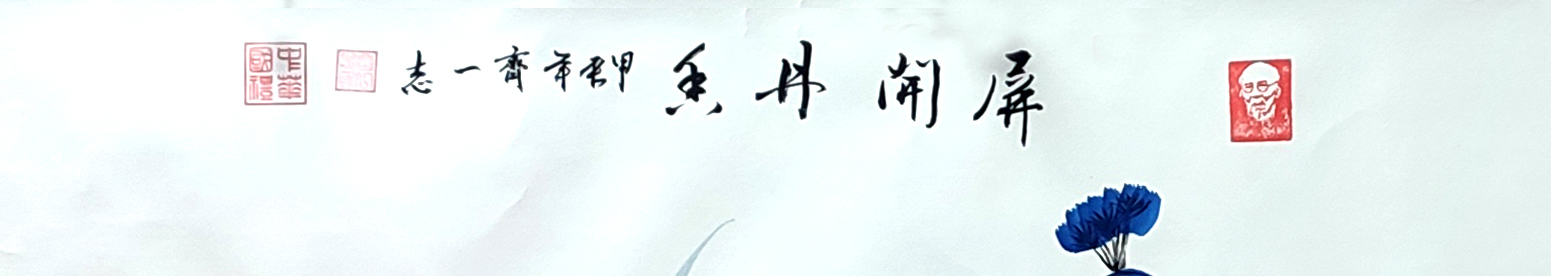 屏開丹香 甲辰年齊一志
中華國禮